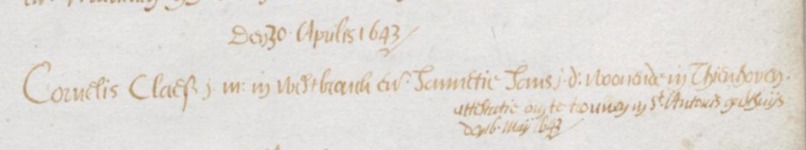 Den 30 Aprilis 1643
Cornelis Claess j: m: in Westbroeck en Jannetie Jans j: d: woonende in Thienhoven.
attestatie om te trouwen in St Anthonis gasthuijs
den 16 Maij 1643